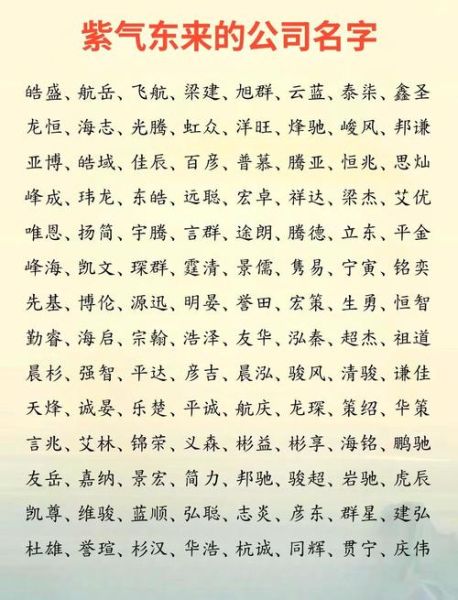 紫气东来的公司名字
皓盛、航岳、飞航、梁建、旭群、云蓝、泰柒、鑫圣
龙恒、海志、光腾、虹众、洋旺、烽驰、峻风、邦谦
亚博、皓域、佳辰、百彦、普慕、腾亚、恒兆、思灿
峰成、玮龙、东皓、远聪、宏卓、祥达、梁杰、艾优
唯恩、扬简、宇腾、言群、途朗、腾德、立东、平金
峰海、凯文、琛群、霆清、景儒、隽易、宁寅、铭奕
先基、博伦、源迅、明晏、誉田、宏策、生勇、恒智
勤睿、海启、宗翰、浩泽、友华、泓秦、超杰、祖道
晨杉、强智、平达、彦吉、晨泓、骏风、清骏、谦佳
天烽、诚晏、乐楚、平诚、航庆、龙琛、策绍、华策
言兆、艾林、锦荣、义森、彬益、彬享、海铭、鹏驰
友岳、嘉纳、景宏、简力、邦驰、骏超、岩驰、虎辰
凯尊、维骏、蓝顺、弘聪、志炎、彦东、群星、建弘
杜雄、誉瑄、杉汉、华浩、杭诚、同辉、贯宁、庆伟